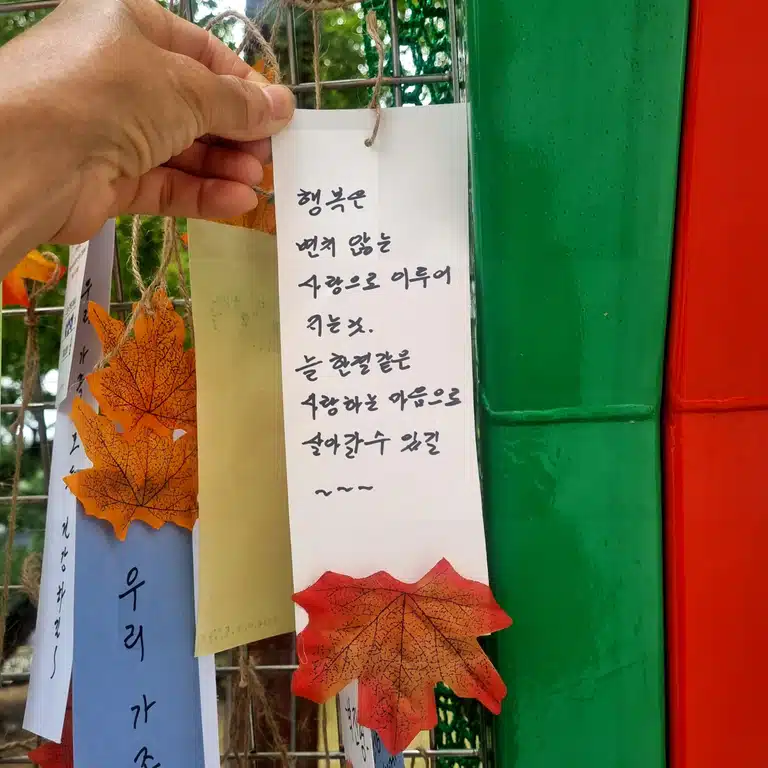 행복은
변치 않는
사랑으로 이루어
지는것.
늘 한결같은
사랑하는 마음으로
살아갈수 있길
~~~
우리 가족
건강하길~
우리 가족